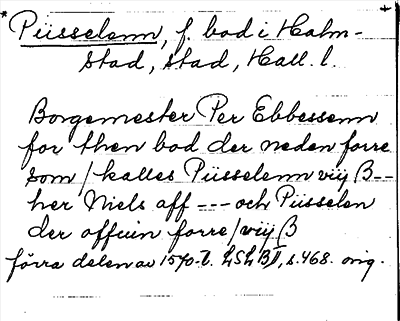 * Püsselenn, f. bod i Halm-
stad, stad, Hall. l.
Borgemester Per Ebbessenn
for then bod der neden forre
som / kalles Püsselenn viij ß --
her Niels aff --- och Püsselen
der offuin forre / viij ß
förra delen av 1570-t. LSLB II, s. 468. orig.